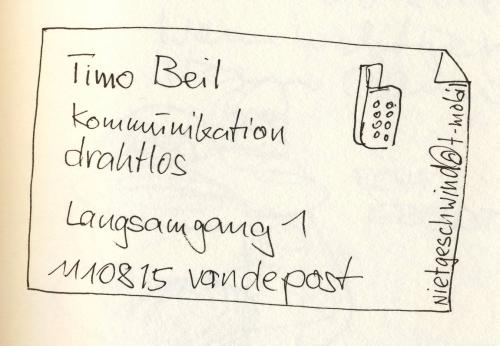 Timo Beil
Kommunikation
drahtlos
Langsamgang 1
1110815 vandepost
nietgeschwind@t-mobil